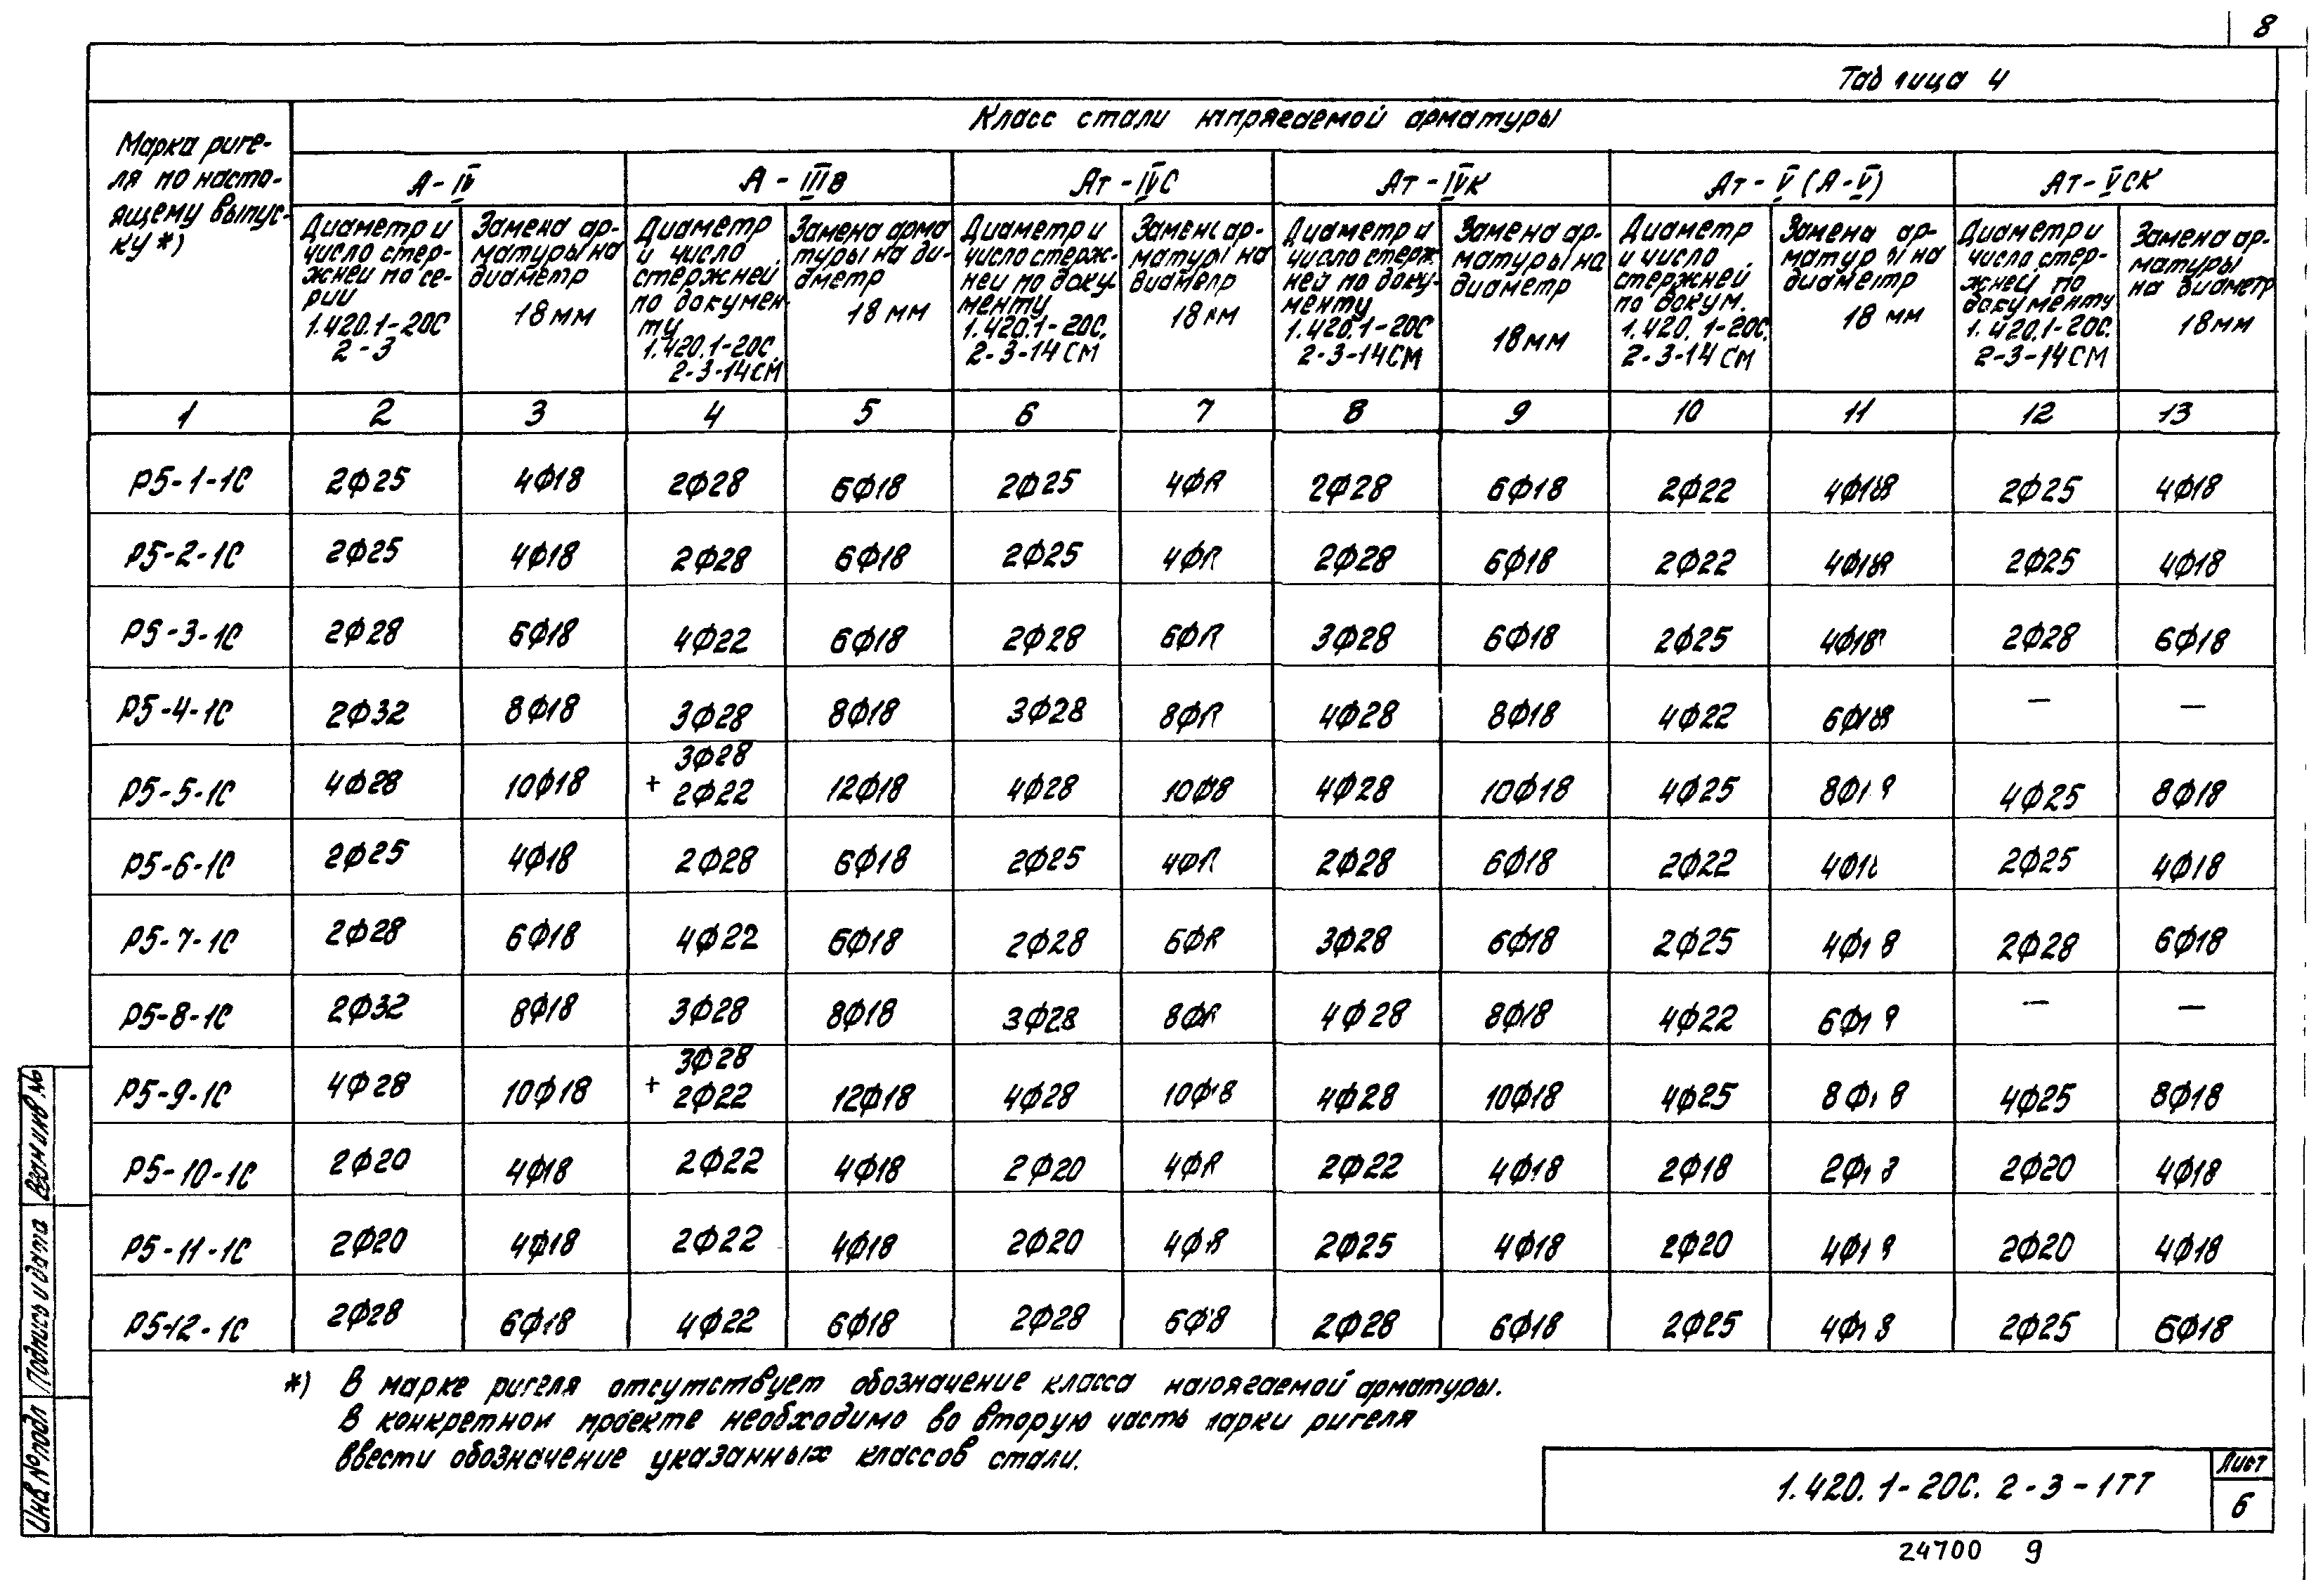 8
Таблица 4
Марка риге-
ля по насто-
ящему выпус-
ку *)
Класс стали напрягаемой арматуры
А-IV
А-IIIв
Ат-IVС
Ат-IVК
Ат-V (А-V)
Ат-VСК
Диаметр и
число стер-
жней по се-
рии
1.420.1-20С
2-3
Замена ар-
матуры на
диаметр
18 мм
Диаметр
и число
стержней
по докумен-
ту
1.420.1-20С.
2-3-14СМ
Замена арма
туры на ди-
аметр
18 мм
Диаметр и
число стерж-
ней по доку-
менту
1.420.1-20С.
2-3-14СМ
Замена ар-
матуры на
диаметр
18 мм
Диаметр и
число стерж
ней по доку-
менту
1.420.1-20С
2-3-14СМ
Замена ар-
матуры на
диаметр
18мм
Диаметр
и число
стержней
по докум.
1.420.1-20С.
2-3-14СМ
Замена ар-
матуры на
диаметр
18 мм
Диаметр и
число стер-
жней по
документу
1.420.1-20С.
2-3-14СМ
Замена ар-
матуры
на диаметр
18мм
1 2 3 4 5 6 7 8 9 10 11 12 13
Р5-1-1С 2Ф25 4Ф18 2Ф28 6Ф18 2Ф25 4Ф18 2Ф28 6Ф18 2Ф22 4Ф18 2Ф25 4Ф18
Р5-2-1С 2Ф25 4Ф18 2Ф28 6Ф18 2Ф25 4Ф18 2Ф28 6Ф18 2Ф22 4Ф18 2Ф25 4Ф18
Р5-3-1С 2Ф28 6Ф18 4Ф22 6Ф18 2Ф28 6Ф18 3Ф28 6Ф18 2Ф25 4Ф18 2Ф28 6Ф18
Р5-4-1С 2Ф32 8Ф18 3Ф28 8Ф18 3Ф28 8Ф18 4Ф28 8Ф18 4Ф22 6Ф18 — —
Р5-5-1С 4Ф28 10Ф18 3Ф28 + 2Ф22 12Ф18 4Ф28 10Ф18 4Ф28 10Ф18 4Ф25 8Ф18 4Ф25 8Ф18
Р5-6-1С 2Ф25 4Ф18 2Ф28 6Ф18 2Ф25 4Ф18 2Ф28 6Ф18 2Ф22 4Ф18 2Ф25 4Ф18
Р5-7-1С 2Ф28 6Ф18 4Ф22 6Ф18 2Ф28 6Ф18 3Ф28 6Ф18 2Ф25 4Ф18 2Ф28 6Ф18
Р5-8-1С 2Ф32 8Ф18 3Ф28 8Ф18 3Ф28 8Ф18 4Ф28 8Ф18 4Ф22 6Ф18 — —
Р5-9-1С 4Ф28 10Ф18 3Ф28 + 2Ф22 12Ф18 4Ф28 10Ф18 4Ф28 10Ф18 4Ф25 8Ф18 4Ф25 8Ф18
Р5-10-1С 2Ф20 4Ф18 2Ф22 4Ф18 2Ф20 4Ф18 2Ф22 4Ф18 2Ф18 2Ф18 2Ф20 4Ф18
Р5-11-1С 2Ф20 4Ф18 2Ф22 4Ф18 2Ф20 4Ф18 2Ф25 4Ф18 2Ф20 4Ф18 2Ф20 4Ф18
Р5-12-1С 2Ф28 6Ф18 4Ф22 6Ф18 2Ф28 6Ф18 2Ф28 6Ф18 2Ф25 4Ф18 2Ф25 6Ф18
*) В марке ригеля отсутствует обозначение класса напрягаемой арматуры.
В конкретном проекте необходимо во вторую часть марки ригеля
ввести обозначение указанных классов стали.
Инв № подл Подпись и дата Взам инв. №
1.420.1-20С. 2-3-1ТТ
Лист
6
24700 9